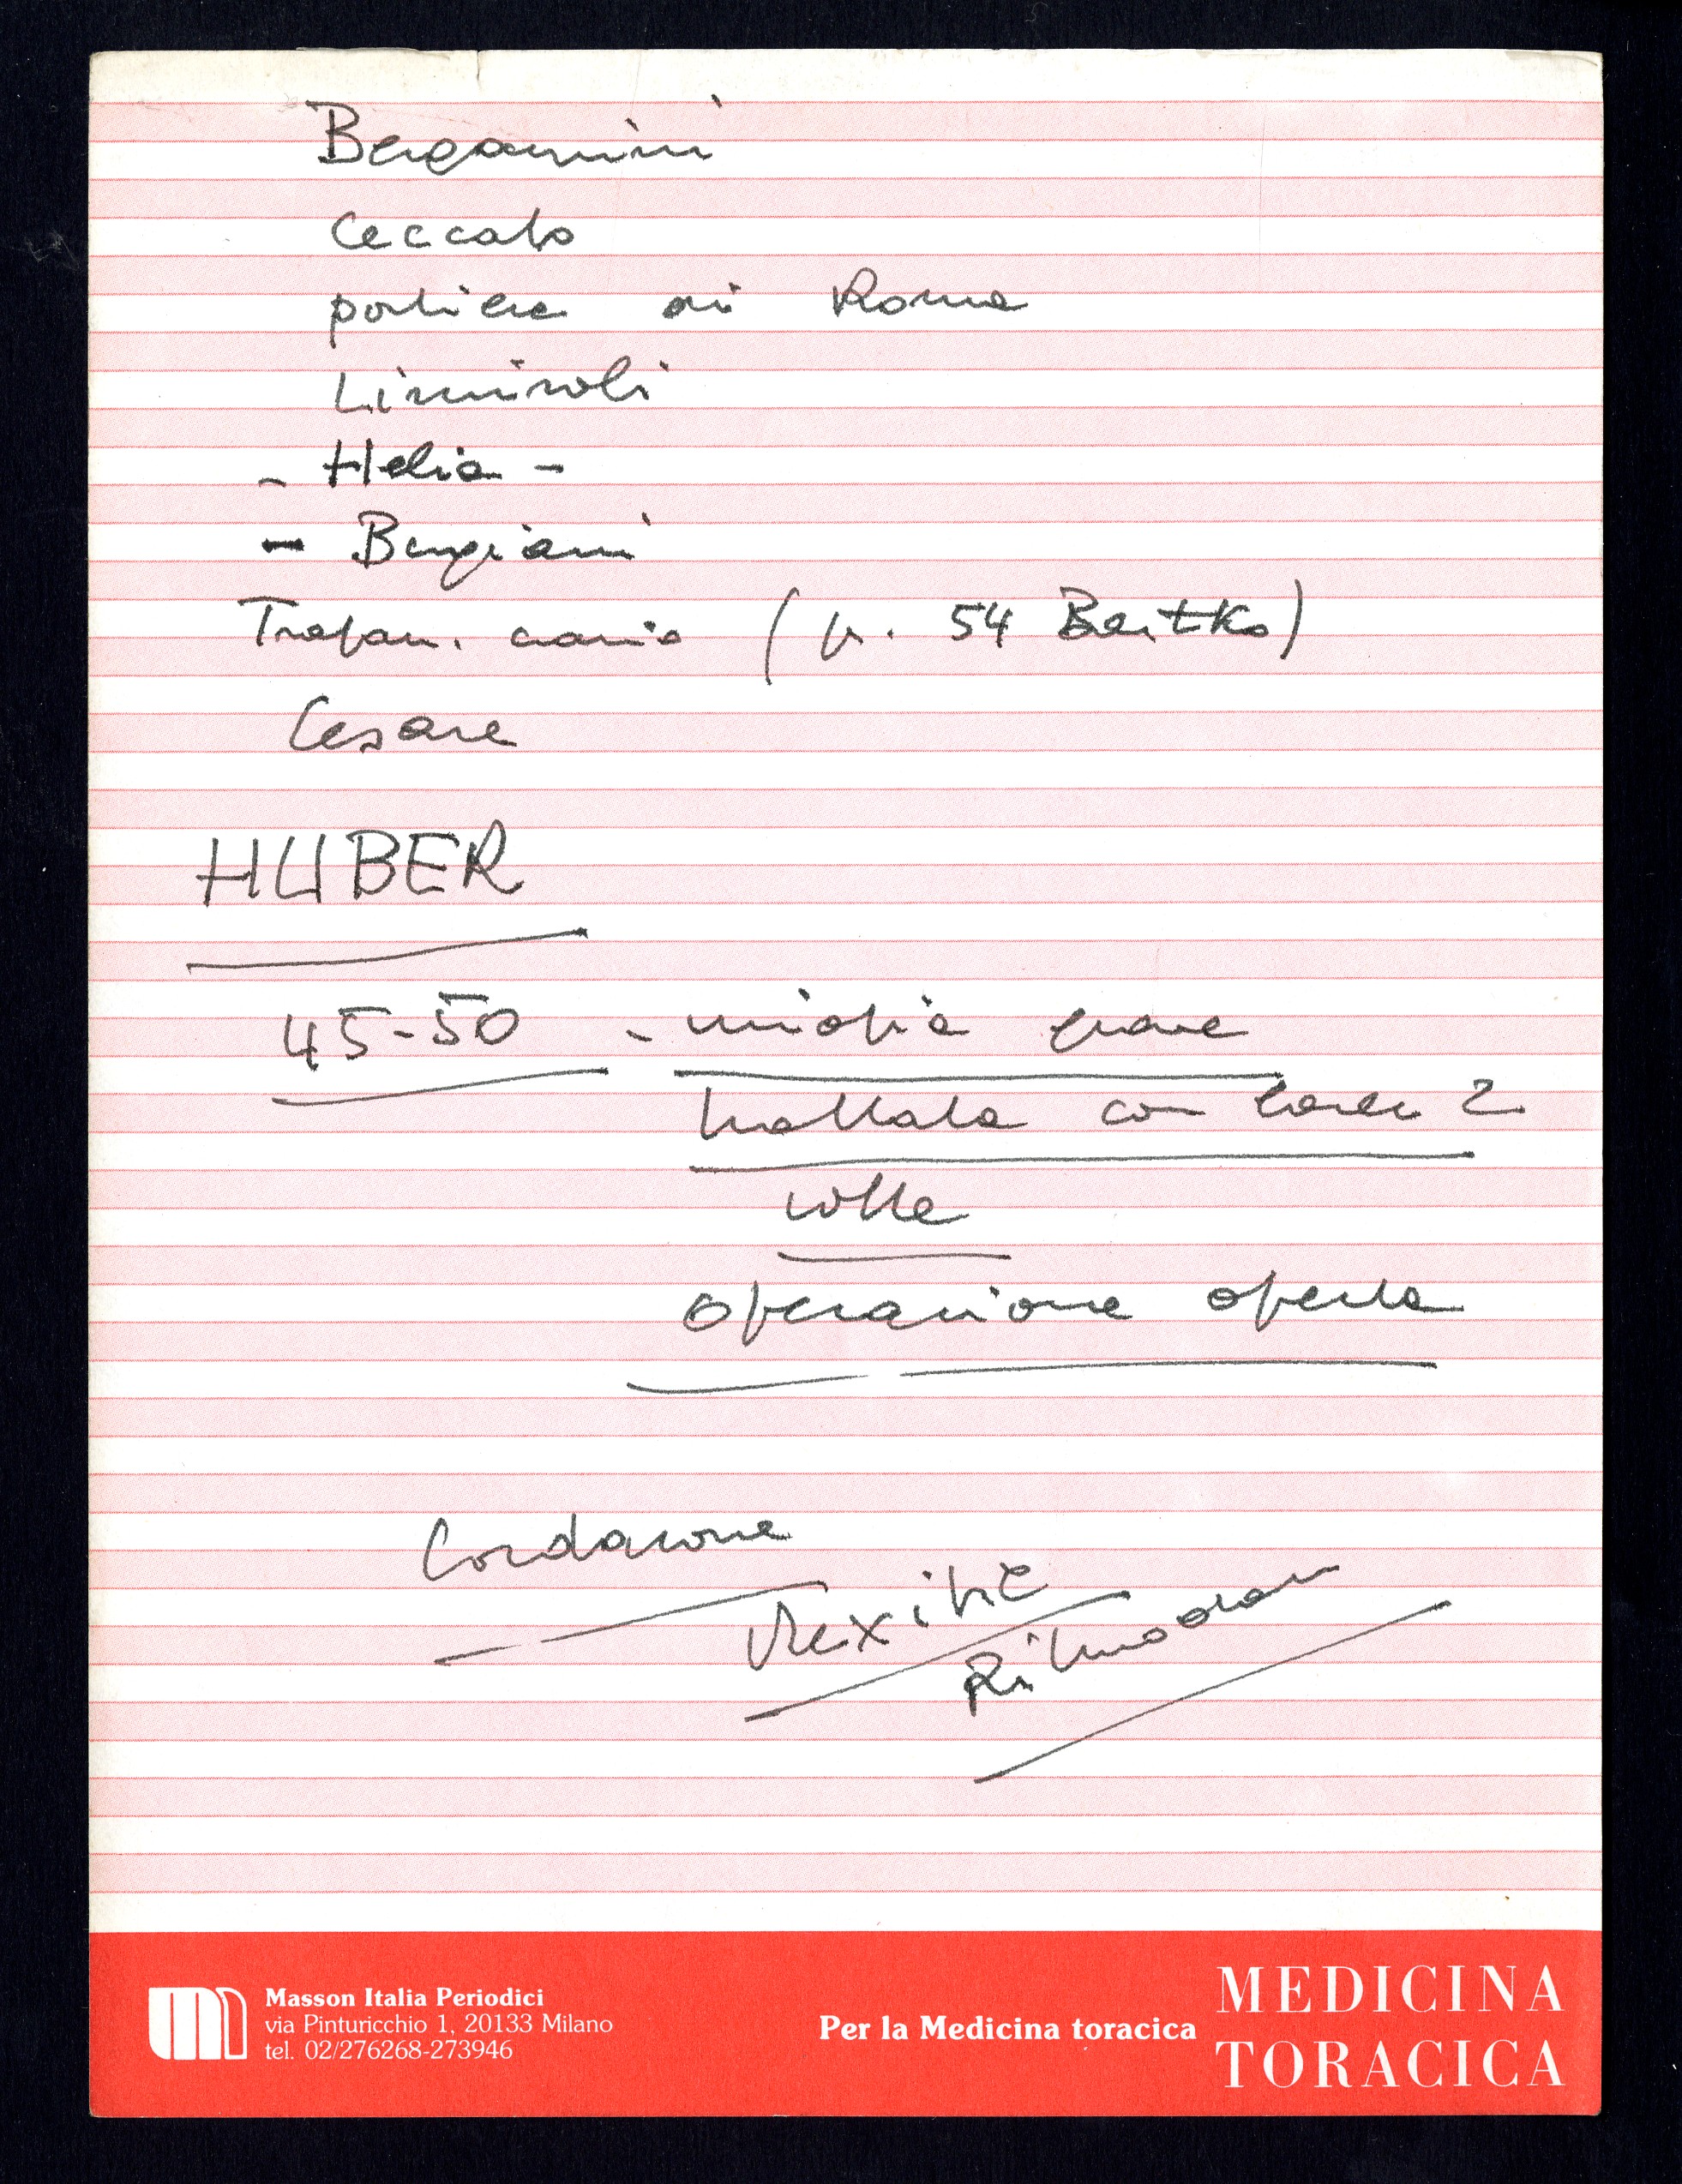 Bergamini
Ceccato
portiere di Roma
Liminoli
- Helia -
- Bergiami
Trapan. crania (p. 54 Bertko)
Cesare
HUBER
45-50 - miopia grave
trattata con laser 2
volte
operazione aperta
Cordarone
Mexitil
Ritmodan
Masson Italia Periodici
via Pinturicchio 1, 20133 Milano
tel. 02/276268-273946
Per la Medicina toracica
MEDICINA
TORACICA